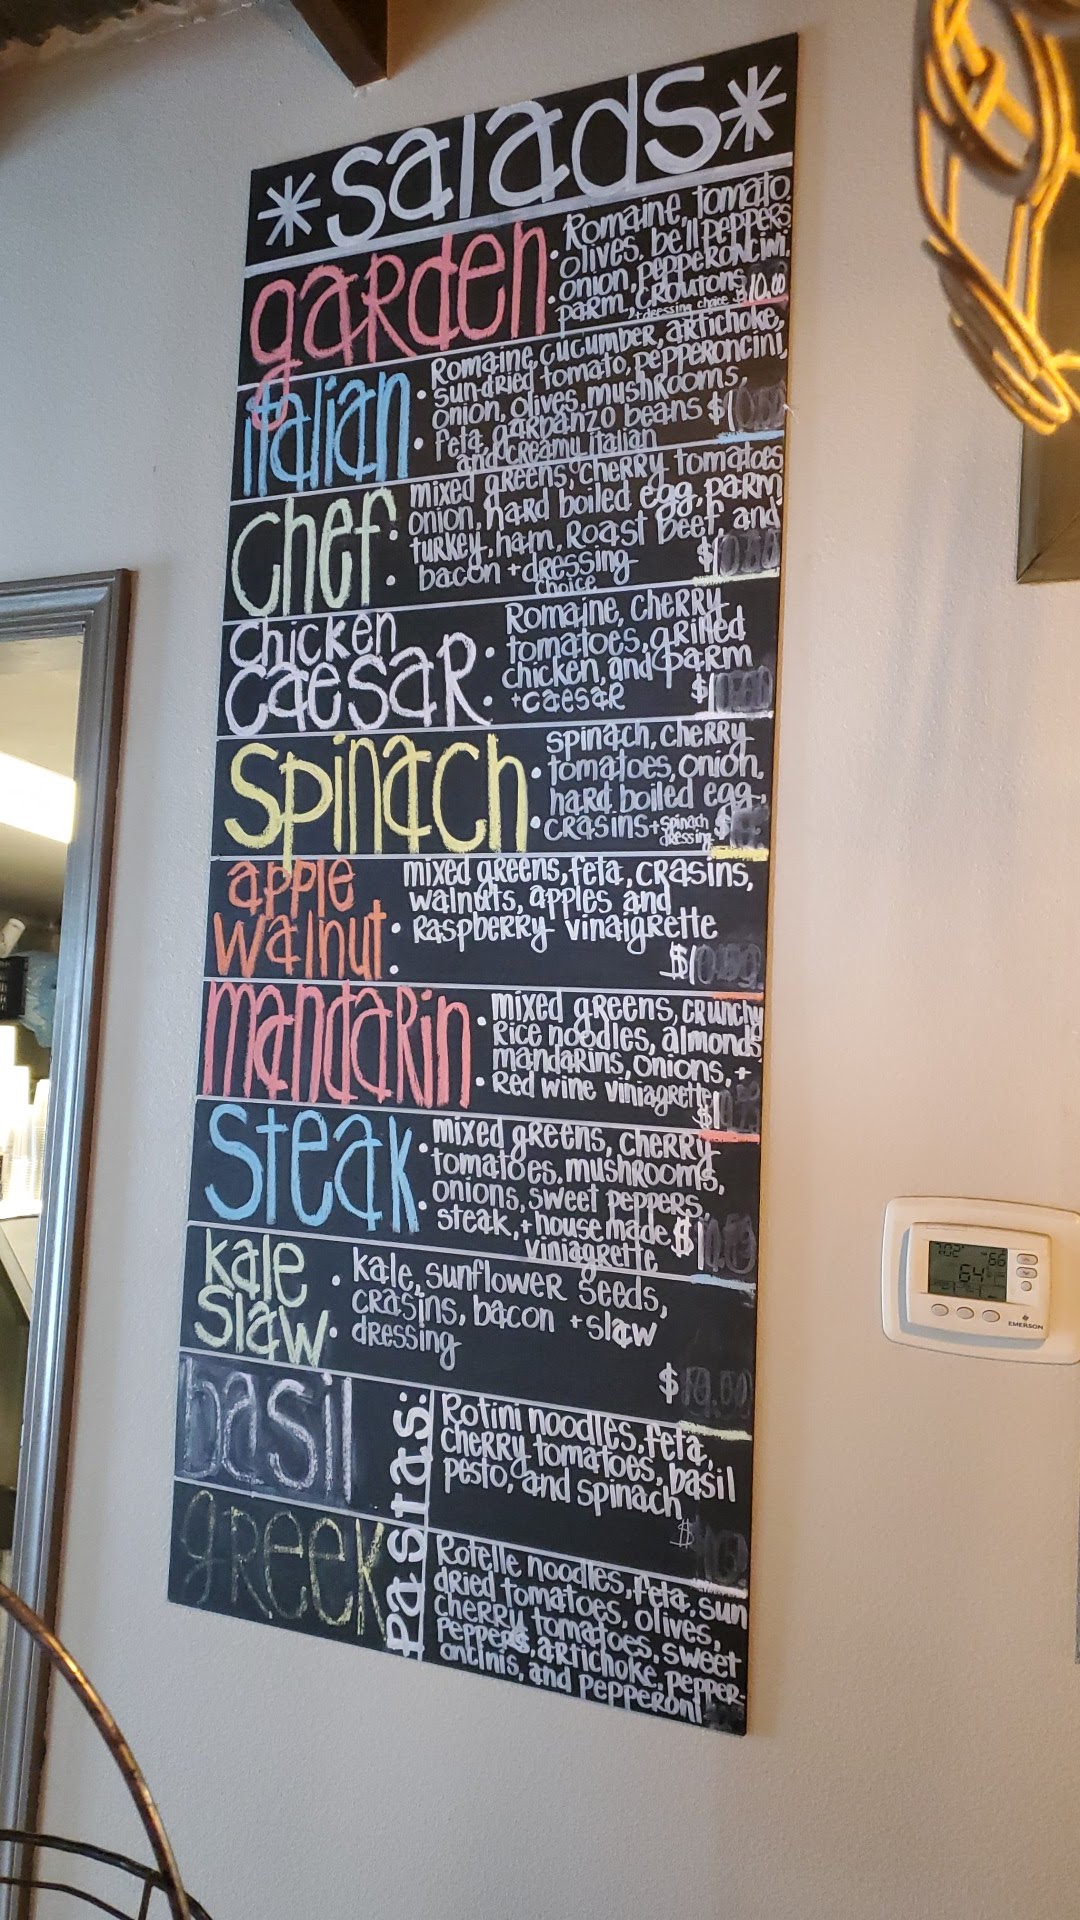 *salads*
garden
Romaine, tomato
olives, bell peppers
onion, pepperoncini,
parm, croutons
+dressing choice $10.00
italian
Romaine, cucumber, artichoke,
sundried tomato, pepperoncini,
onion, olives, mushrooms,
feta, garbanzo beans $1
and creamy italian
chef
mixed greens, cherry tomatoes
onion, hard boiled egg, parm
turkey, ham, Roast Beef, and
bacon + dressing
choice
$1
chicken
caesar
Romaine, cherry
tomatoes, grilled
chicken, and parm
+caesar $1
spinach
spinach, cherry
tomatoes, onion,
hard boiled egg,
crasins + spinach
dressing $
apple
walnut
mixed greens, feta, crasins,
walnuts, apples and
raspberry vinaigrette
$1
mandarin
mixed greens, crunchy
Rice noodles, almonds
mandarins, onions, +
Red wine viniagrette
$1
steak
mixed greens, cherry
tomatoes, mushrooms,
onions, sweet peppers,
steak, + housemade $1
viniagrette
kale
slaw
kale, sunflower seeds,
crasins, bacon + slaw
dressing
$10.00
Pastas:
basil
Rotini noodles, feta,
cherry tomatoes, basil
pesto, and spinach
$
greek
Rotelle noodles, feta, sun
dried tomatoes, olives,
cherry tomatoes, sweet
peppers, artichoke, pepper-
oncinis, and pepperoni
7:02 66
64
EMERSON